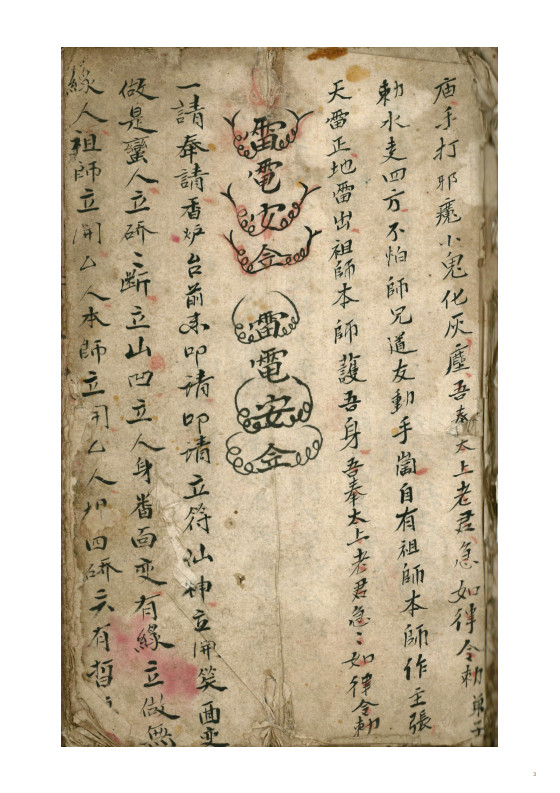 庙手打邪魔小鬼化灰塵吾奉太上老君急如律令勅弟子
勅水走四方不怕師兄道友動手啚自有祖師本師作主張
天雷正地雷出祖師本師護吾身吾奉太上老君急〻如律令勅
雷電安令
雷電安令
一請奉請香炉台前未叩请叩请立符仙神立開笑面变
做是蠻人立砾〻断立山凹立人身畨面变有緣立做無
緣人祖師立開厶人本師立開厶人四有哲